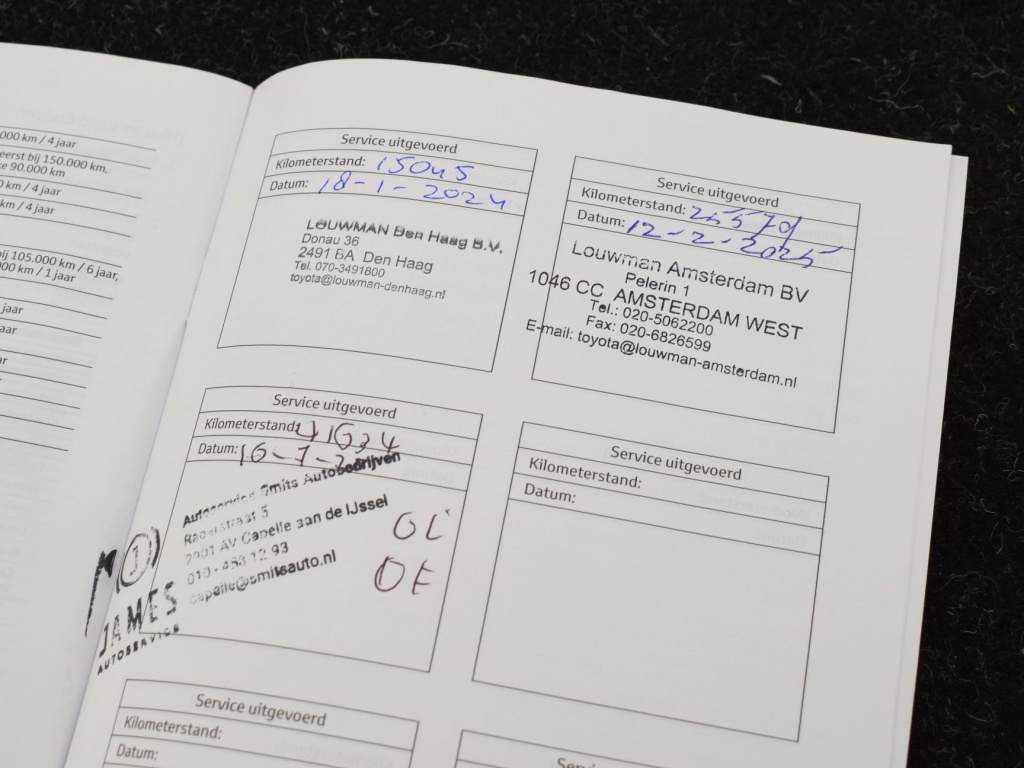 000 km / 4 jaar
eerst bij 150.000 km,
90.000 km
km / 4 jaar
km / 4 jaar
bij 105.000 km / 6 jaar,
000 km / 1 jaar
jaar
jaar
Service uitgevoerd
Kilometerstand: 15045
Datum: 18-1-2024
LOUWMAN Den Haag B.V.
Donau 36
2491 BA Den Haag
Tel. 070-3491800
toyota@louwman-denhaag.nl
Service uitgevoerd
Kilometerstand:
Datum: 12-2-2025
Louwman Amsterdam BV
Pelerin 1
1046 CC AMSTERDAM WEST
Tel.: 020-5062200
Fax: 020-6826599
E-mail: toyota@louwman-amsterdam.nl
Service uitgevoerd
Kilometerstand: 41634
Datum:
Smits Autobedrijven
AV Capelle aan de IJssel
capelle@smitsauto.nl
JAMES
AUTOSERVICE
Service uitgevoerd
Kilometerstand:
Datum:
Service uitgevoerd
Kilometerstand:
Datum: